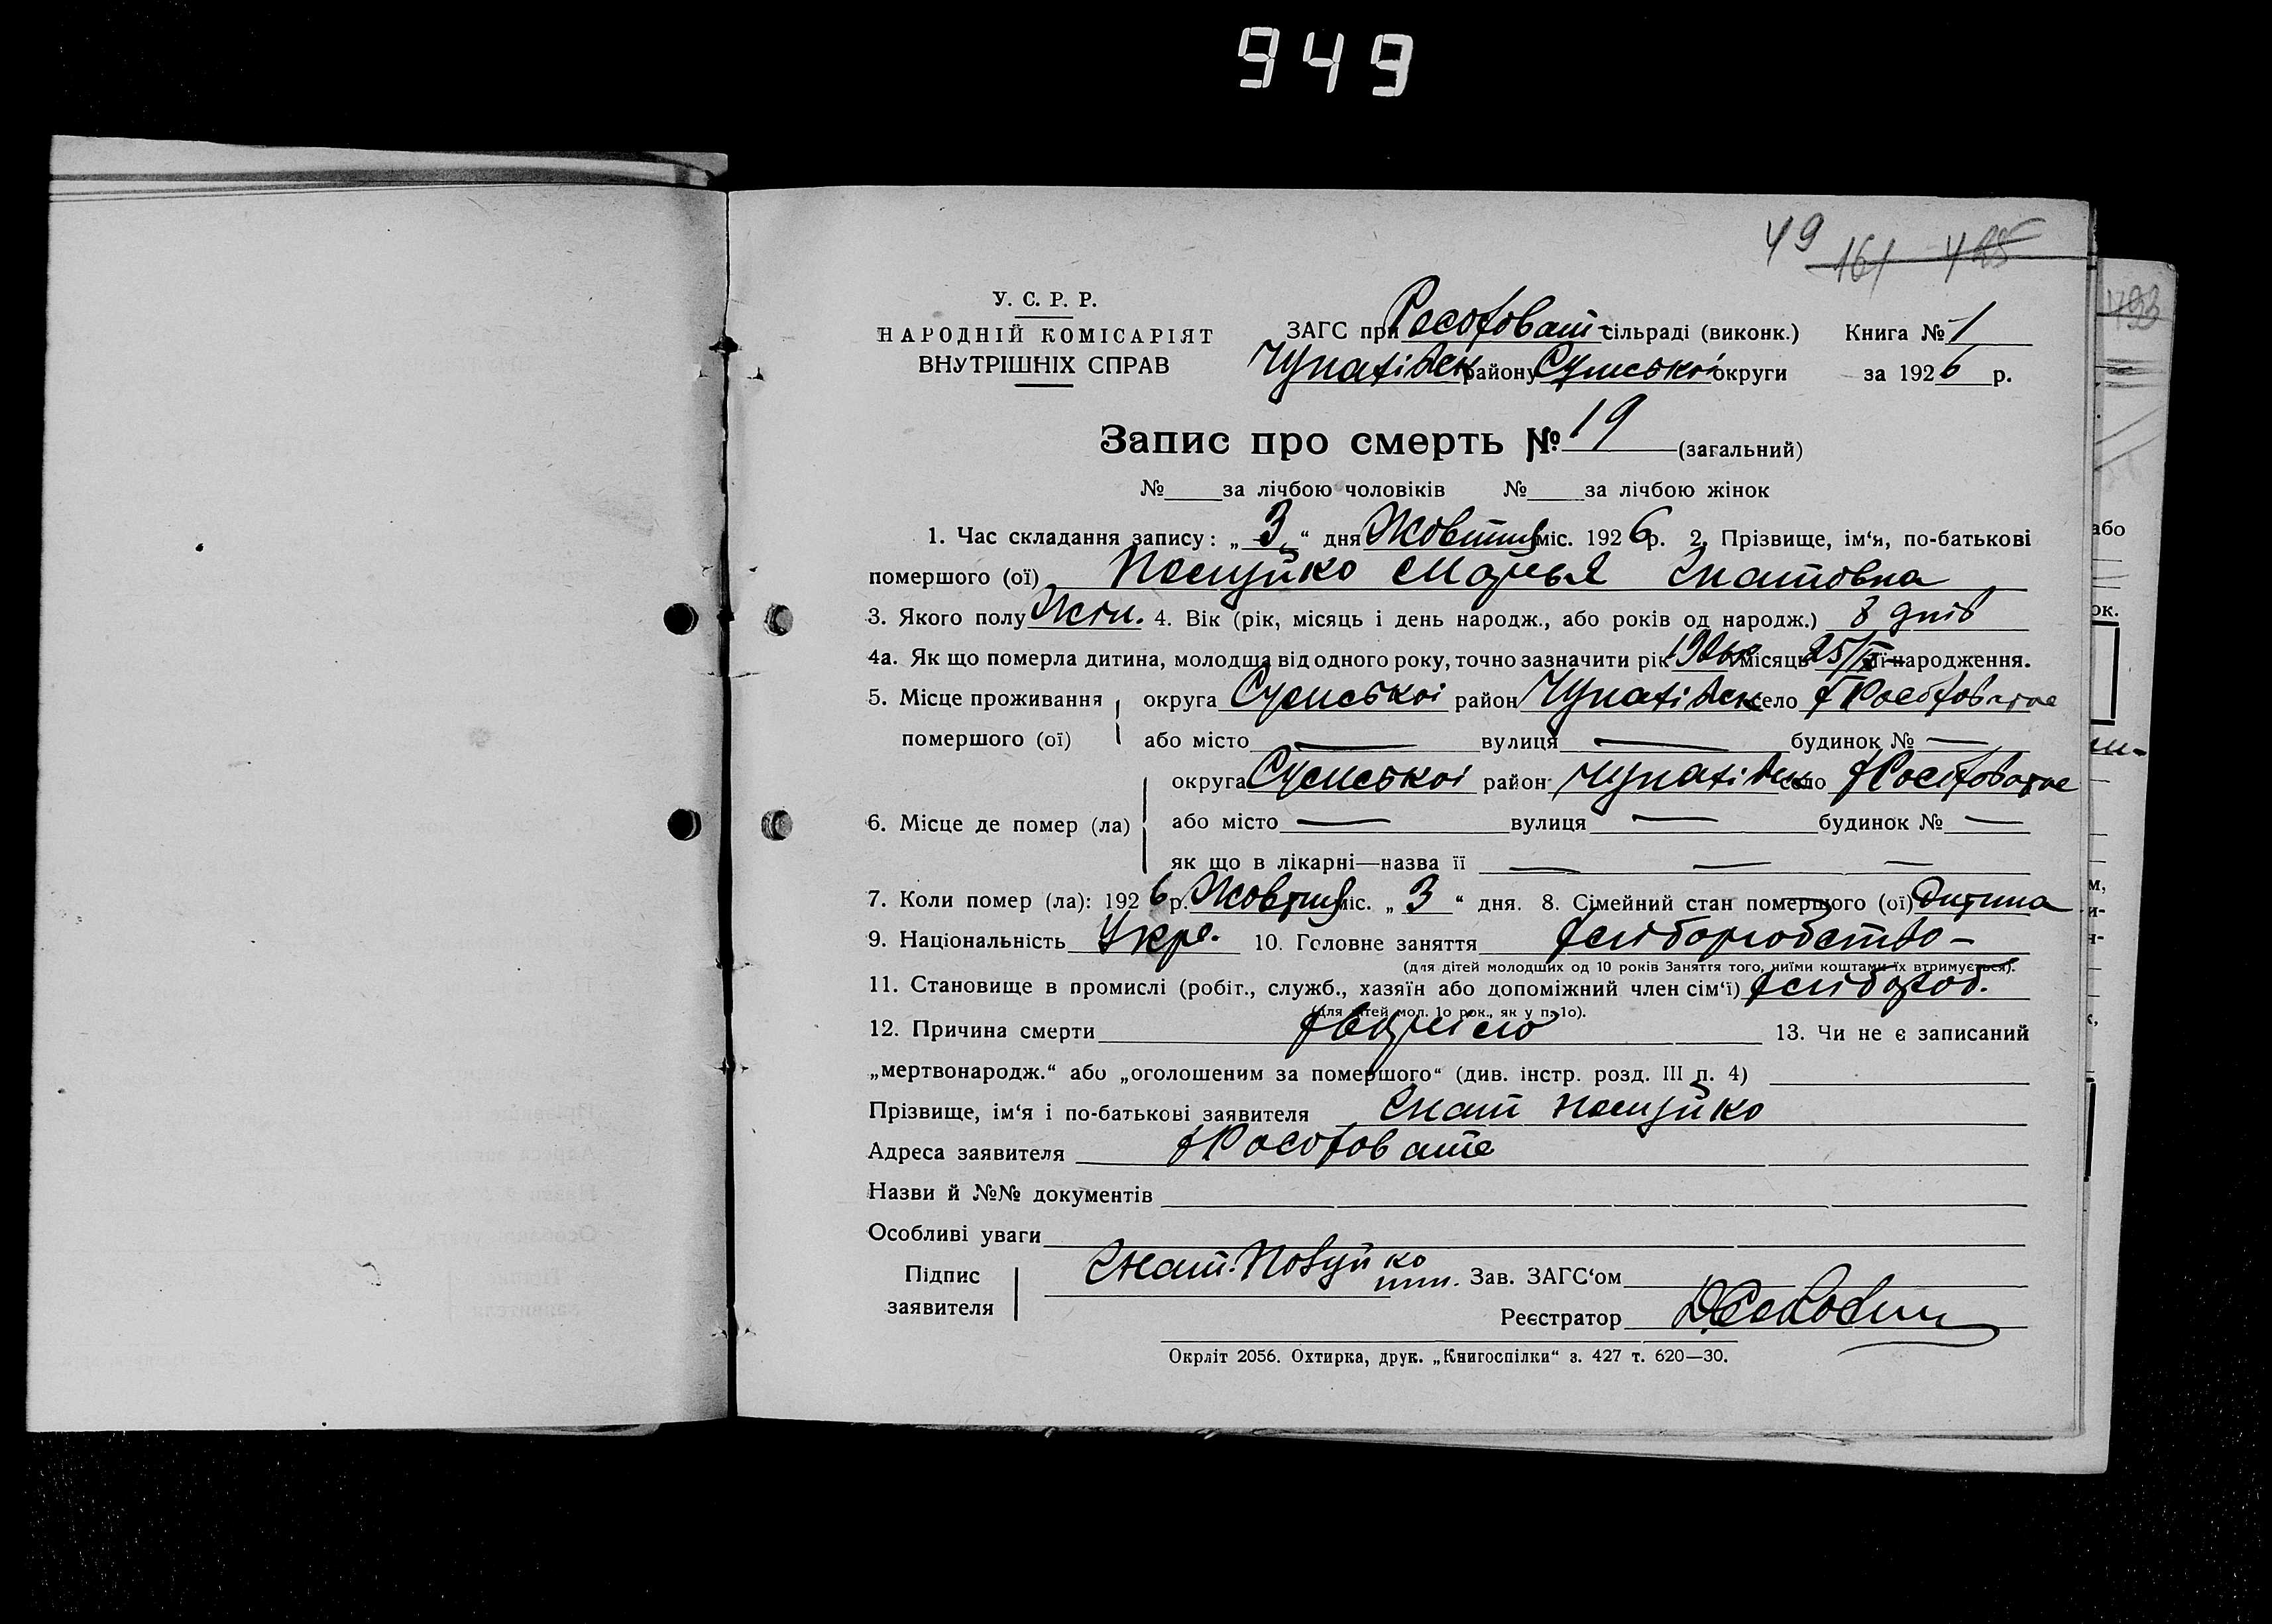 949
49 161 485
У. С. Р. Р.
НАРОДНІЙ КОМІСАРІЯТ
ВНУТРІШНІХ СПРАВ
ЗАГС при Рособоват- сільраді (виконк.) Книга № 1
району Сумської округи за 1926 р.
Запис про смерть № 19 (загальний)
№ за лічбою чоловіків № за лічбою жінок
1. Час складання запису: „3“ дня Жовтня міс. 1926 р. 2. Прізвище, ім‘я, по-батькові
помершого (ої) Мар'я Гнатовна
3. Якого полу Жін. 4. Вік (рік, місяць і день народж., або років од народж.) 8 днів
4а. Як що померла дитина, молодша від одного року, точно зазначити рік 1926 місяць 25/IX її народження.
5. Місце проживання округа Сумської район село
помершого (ої) або місто — вулиця — будинок № —
округа Сумської район село
6. Місце де помер (ла) або місто — вулиця — будинок № —
як що в лікарні—назва її — — —
7. Коли помер (ла): 1926 р. Жовтня міс. „3“ дня. 8. Сімейний стан помершого (ої) Дитина
9. Національність Укр. 10. Головне заняття хліборобство —
(для дітей молодших од 10 років Заняття того, чиїми коштами їх втримується).
11. Становище в промислі (робіт., служб., хазяїн або допоміжний член сім‘ї) хлібороб.
(для дітей мол. 10 рок., як у п. 10).
12. Причина смерти 13. Чи не є записаний
„мертвонародж.“ або „оголошеним за помершого“ (див. інстр. розд. III п. 4)
Прізвище, ім‘я і по-батькові заявителя Гнат
Адреса заявителя
Назви й №№ документів
Особливі уваги
Підпис Гнат. Зав. ЗАГС‘ом
заявителя
Реєстратор
Окрліт 2056. Охтирка, друк. „Книгоспілки“ з. 427 т. 620—30.